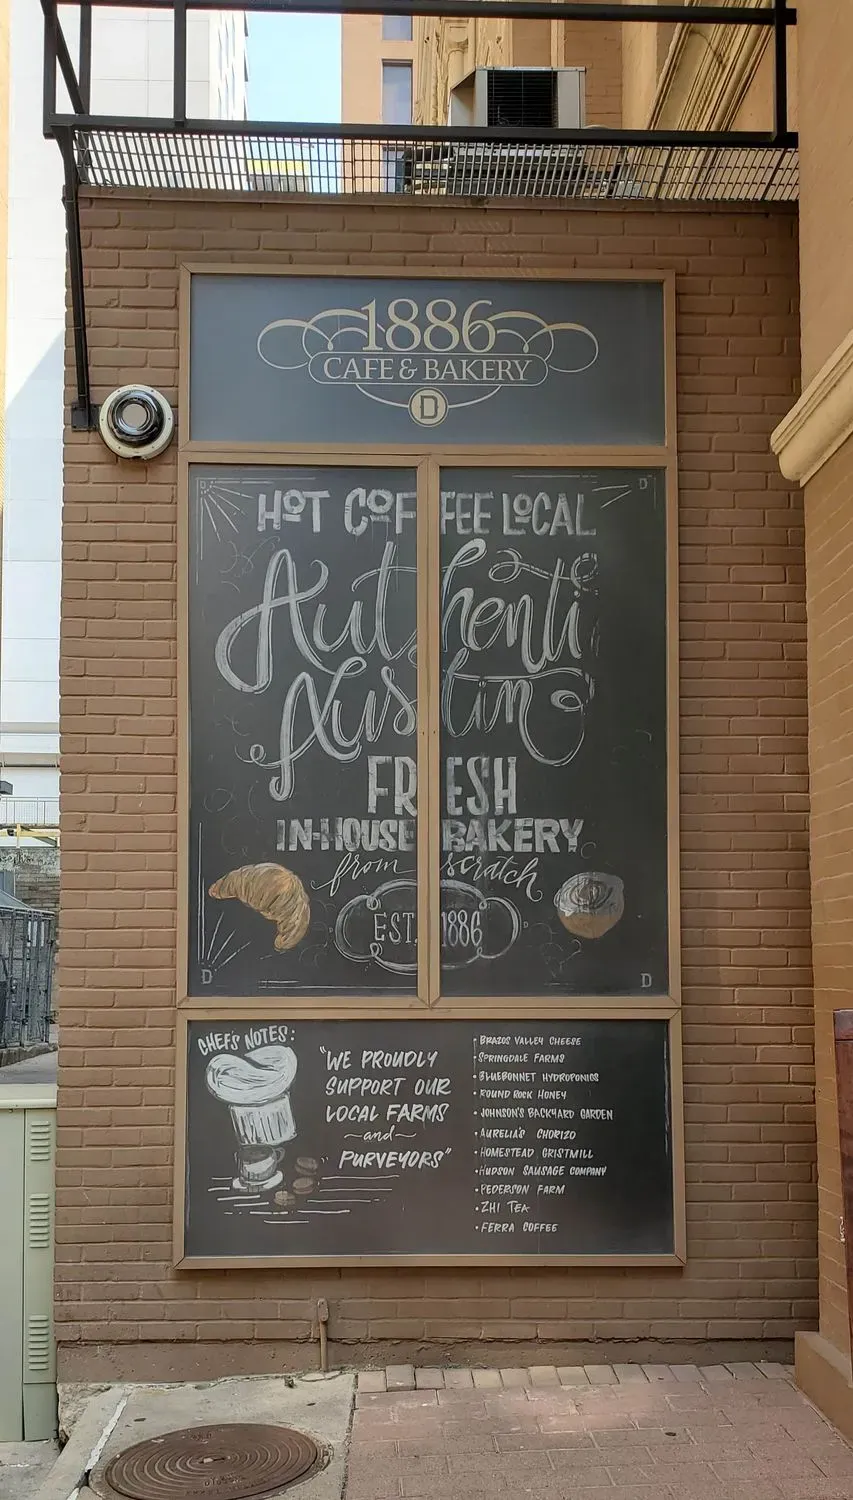 1886
CAFE & BAKERY
D
D
HOT COFFEE LOCAL
Authenti
Austin
FRESH
IN-HOUSE BAKERY
from scratch
EST. 1886
D
D
CHEF'S NOTES:
"WE PROUDLY
SUPPORT OUR
LOCAL FARMS
~and~
PURVEYORS"
• BRAZOS VALLEY CHEESE
• SPRINGDALE FARMS
• BLUEBONNET HYDROPONICS
• ROUND ROCK HONEY
• JOHNSON'S BACKYARD GARDEN
• AURELIA'S CHORIZO
• HOMESTEAD GRISTMILL
• HUDSON SAUSAGE COMPANY
• PEDERSON FARM
• ZHI TEA
• FERRA COFFEE